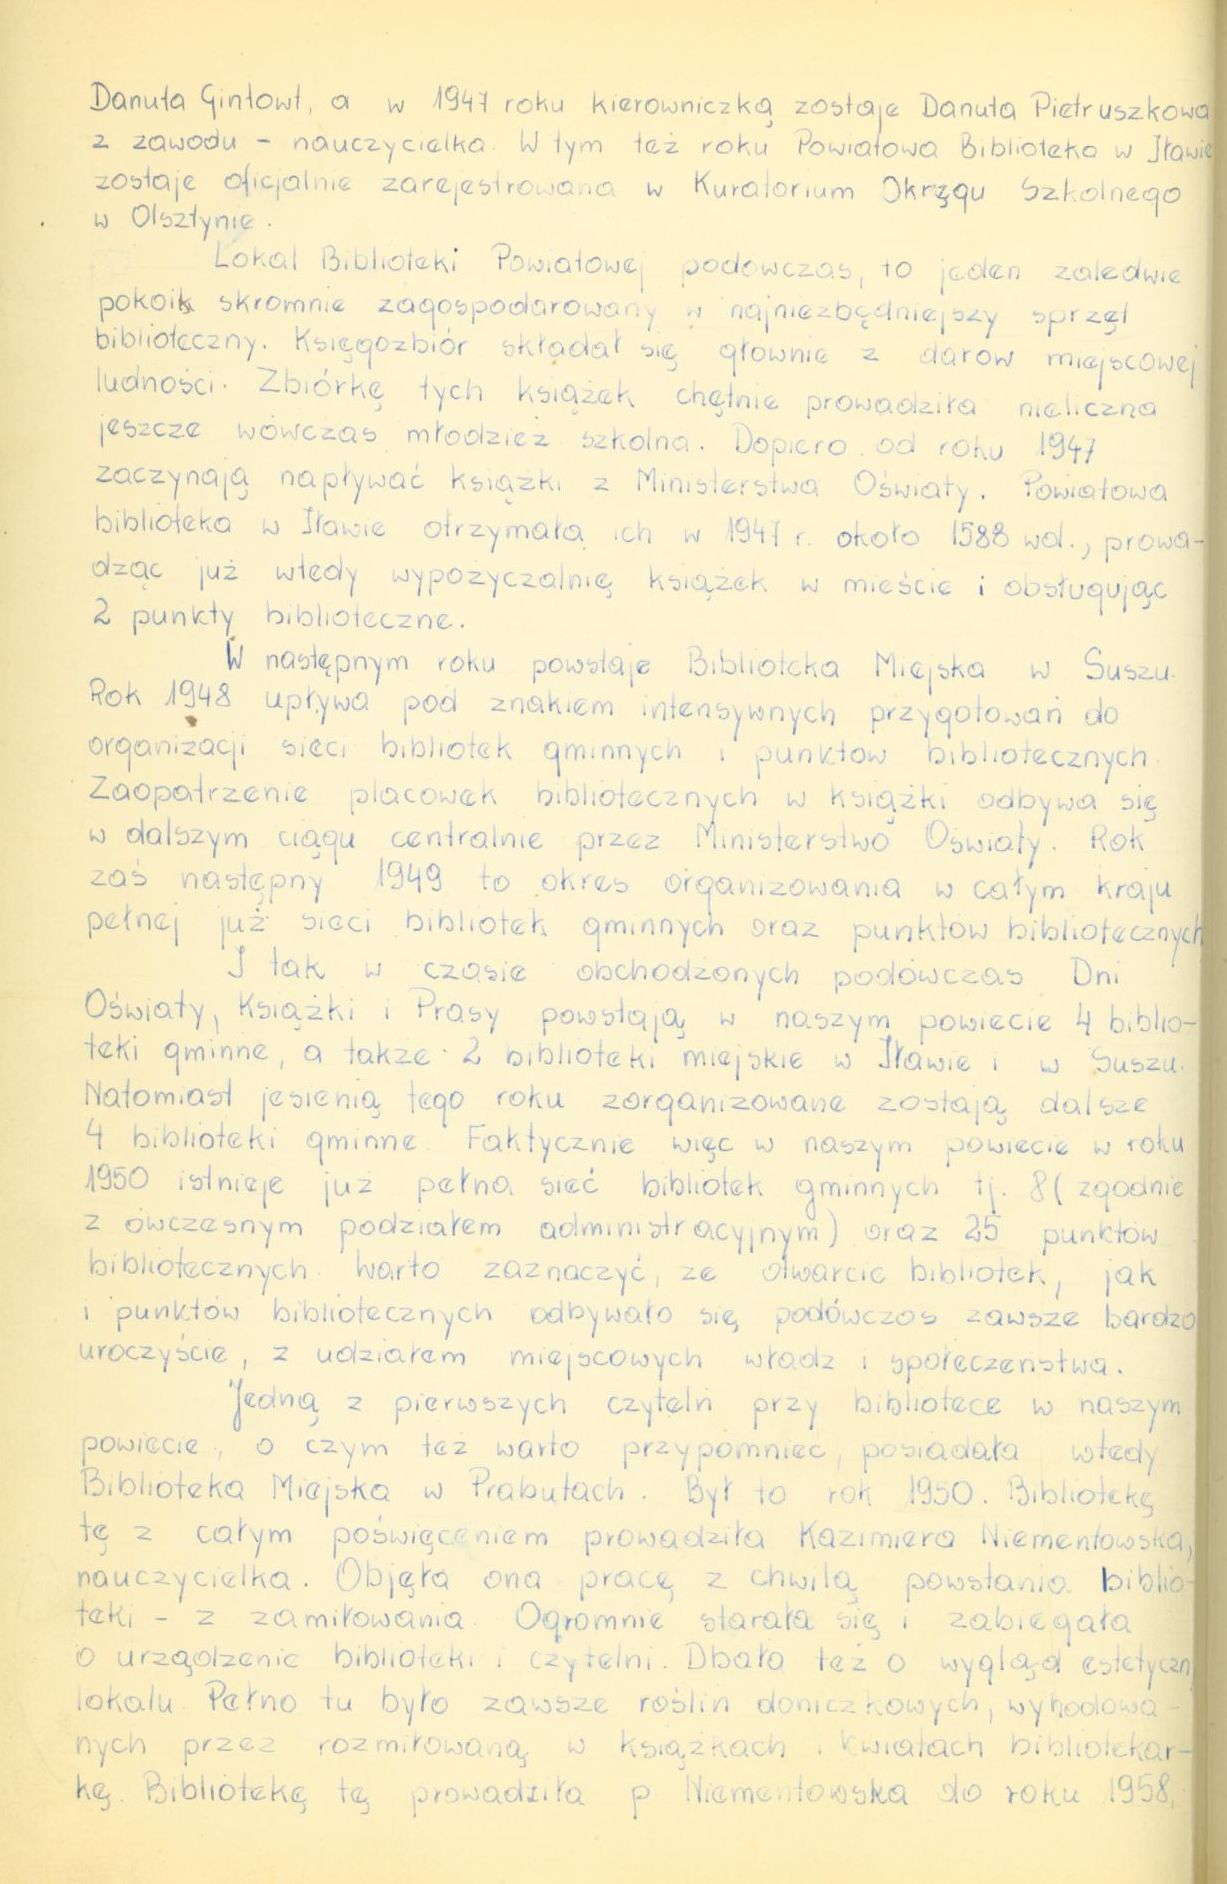 Danuta Gintowt, a w 1947 roku kierowniczką zostaje Danuta Pietruszkowa
z zawodu - nauczycielka. W tym też roku Powiatowa Biblioteka w Iławie
zostaje oficjalnie zarejestrowana w Kuratorium Okręgu Szkolnego
w Olsztynie.
Lokal Biblioteki Powiatowej podówczas, to jeden zaledwie
pokoik skromnie zagospodarowany w najniezbędniejszy sprzęt
biblioteczny. Księgozbiór składał się głownie z darow miejscowej
ludności. Zbiórkę tych książek chętnie prowadziła nieliczna
jeszcze wówczas młodzież szkolna. Dopiero od roku 1947
zaczynają napływać książki z Ministerstwa Oświaty. Powiatowa
biblioteka w Iławie otrzymała ich w 1947 r. około 1588 wol., prowa-
dząc już wtedy wypożyczalnię książek w mieście i obsługując
2 punkty biblioteczne.
W następnym roku powstaje Biblioteka Miejska w Suszu.
Rok 1948 upływa pod znakiem intensywnych przygotowań do
organizacji sieci bibliotek gminnych i punktów bibliotecznych.
Zaopatrzenie placowek bibliotecznych w książki odbywa się
w dalszym ciągu centralnie przez Ministerstwo Oświaty. Rok
zaś następny 1949 to okres organizowania w całym kraju
pełnej już sieci bibliotek gminnych oraz punktów bibliotecznych
I tak w czasie obchodzonych podówczas Dni
Oświaty, Książki i Prasy powstają w naszym powiecie 4 biblio-
teki gminne, a także 2 biblioteki miejskie w Iławie i w Suszu.
Natomiast jesienią tego roku zorganizowane zostają dalsze
4 biblioteki gminne. Faktycznie więc w naszym powiecie w roku
1950 istnieje już pełna sieć bibliotek gminnych tj. 8 (zgodnie
z ówczesnym podziałem administracyjnym) oraz 25 punktów
bibliotecznych. Warto zaznaczyć, że otwarcie bibliotek, jak
i punktów bibliotecznych odbywało się podówczas zawsze bardzo
uroczyście, z udziałem miejscowych władz i społeczeństwa.
Jedną z pierwszych czytelń przy bibliotece w naszym
powiecie, o czym też warto przypomnieć, posiadała wtedy
Biblioteka Miejska w Prabutach. Był to rok 1950. Bibliotekę
tę z całym poświęceniem prowadziła Kazimiera Niementowska,
nauczycielka. Objęła ona pracę z chwilą powstania biblio-
teki - z zamiłowania. Ogromnie starała się i zabiegała
o urządzenie biblioteki i czytelni. Dbała też o wygląd estetyczny
lokalu. Pełno tu było zawsze roślin doniczkowych, wyhodowa-
nych przez rozmiłowaną w książkach i kwiatach bibliotekar-
kę. Bibliotekę tę prowadziła p. Niementowska do roku 1958,